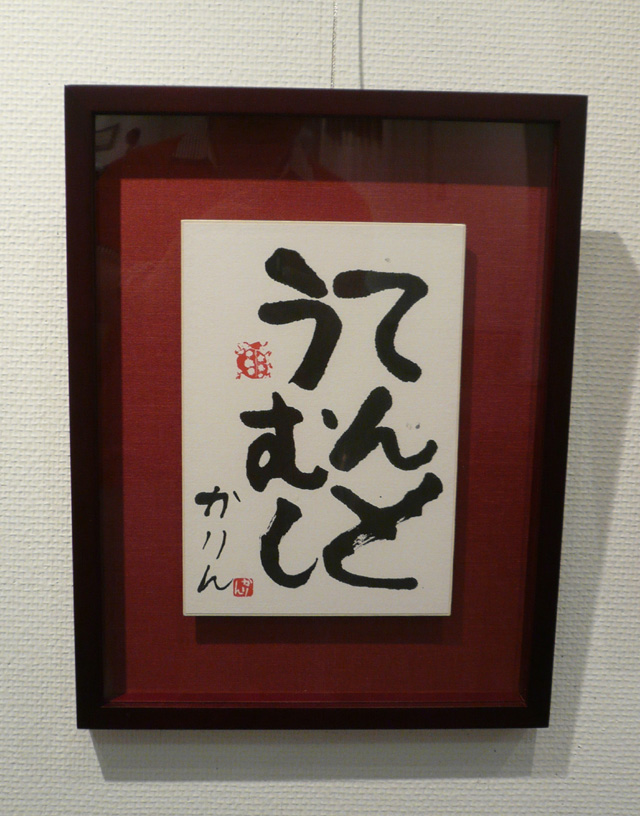 てんと
うむし
かりん
かりん